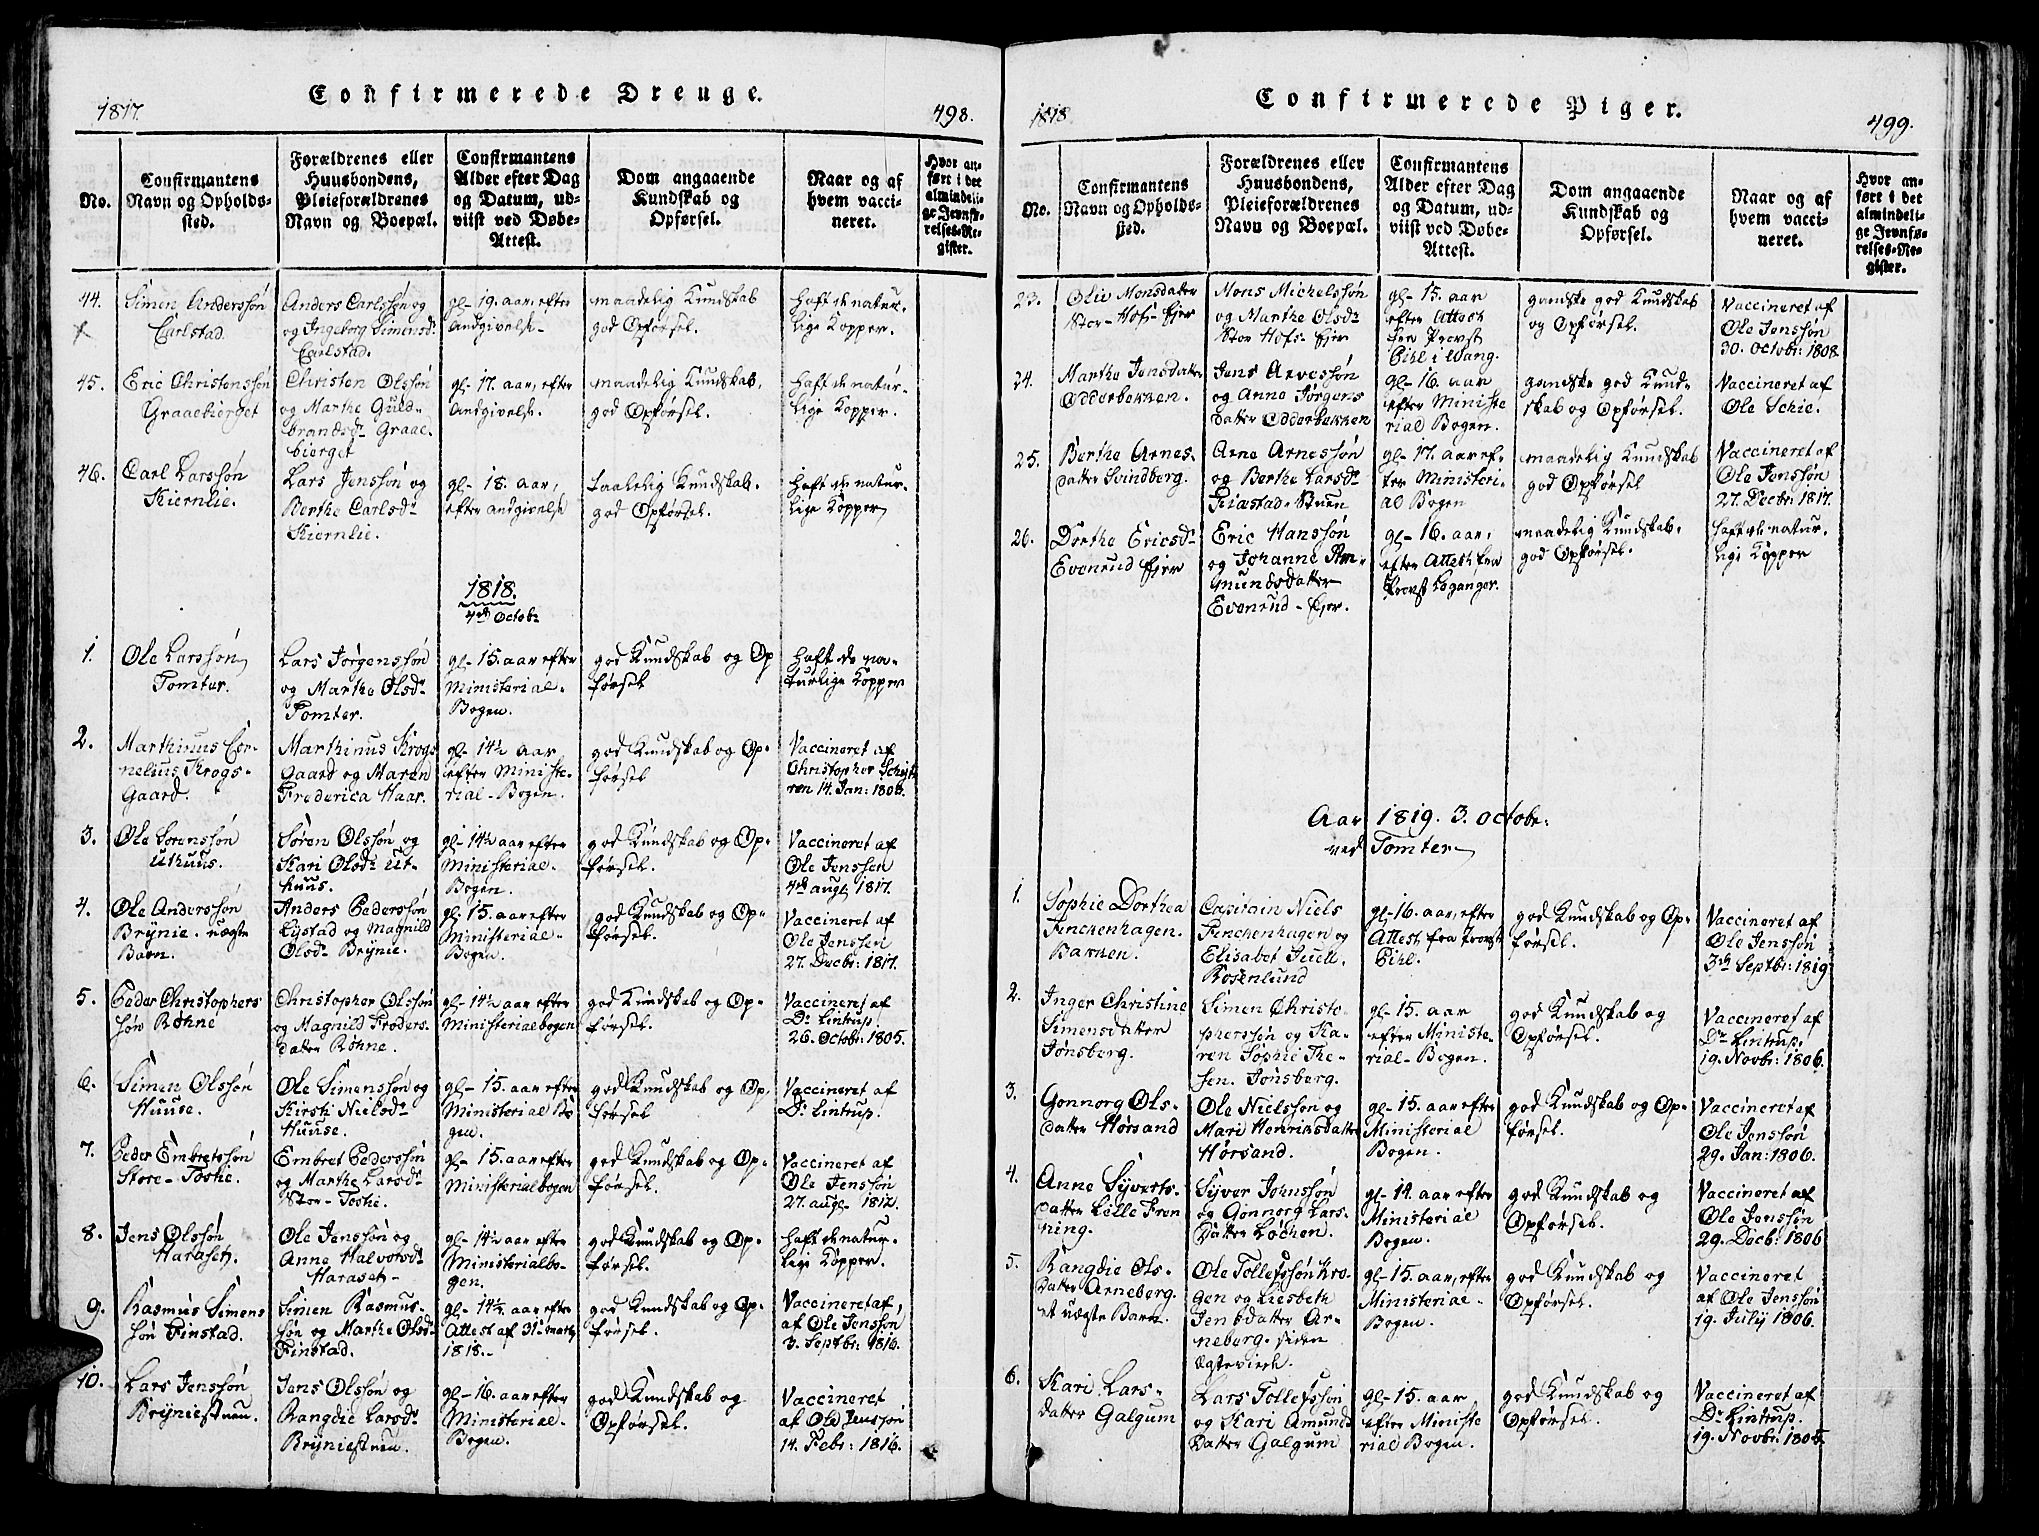 1817.
Confirmerede Drenge.
498.
No.
Confirmantens
Navn og Opholds-
sted.
Forældrenes eller
Huusbondens,
Pleieforældrenes
Navn og Boepæl.
Confirmantens
Alder efter Dag
og Datum, ud-
viist ved Døbe-
Attest.
Dom angaaende
Kundskab og
Opførsel.
Naar og af
hvem vacci-
neret.
Hvor an-
ført i det
almindeli-
ge Jevnfø-
relses-Re-
gister.
44.
Simen Anderssøn
Carlstad.
Anders Carlssøn og
og Ingeborg Simensd:
Carlstad.
gl- 19. aar, efter
Andgivelse-
maadelig Kundskab
god Opførsel.
Haft de natur-
lige Kopper.
45.
Eric Christenssøn
Graaebierget
Christen Olssøn
og Marthe Guld-
brandsd- Graae-
bierget
gl- 17. aar, efter
Andgivelse.
maadelig Kundskab,
god Opførsel.
Haft de natur-
lige Kopper.
46.
Carl Larssøn
Kiernlie.
Lars Jenssøn og
Berthe Carlsd-
Kiernlie.
gl- 18. aar,
efter andgivelse
taalelig Kundskab.
god Opførsel.
Haft de natur-
lige Kopper
1818.
4de Octobr
1.
Ole Larssøn
Tomter.
Lars Jørgenssøn
og Marthe Olsd-
Tomter.
gl- 15. aar efter
Ministerial-
Bogen.
god Kundskab og Op
førsel
Haft de na-
turlige Kopper
2.
Marthinus Cor-
nelius Krogs-
Gaard.
Marthinus Krogs
Gaard og Maren
Frederica Haar.
gl- 14½ aar
efter Ministe-
rial-Bogen.
god Kundskab og Op-
førsel
Vaccineret af
Christopher
14. Jan: 1806.
3.
Ole Sørenssøn
Uthuus.
Søren Olssøn og
Kari Olsd- Ut-
huus.
gl- 14½ aar efter
Ministerial-
Bogen.
god Kundskab og Op-
førsel.
Vaccineret af
Ole Jenssen
4de augt 1817.
4.
Ole Anderssøn
Brynie. uægte
Barn.
Anders Pederssøn
Lystad og Magnild
Olsd- Brynie.
gl- 15. aar efter
Ministerial-
Bogen.
god Kundskab og Op-
førsel.
Vaccineret af
Ole Jenssen
27. Decbr: 1817.
5.
Peder Christophers
søn Røhne
Christopher Olssøn
og Magnild Froders-
datter Røhne.
gl- 14½ aar efter
Ministerialbogen
god Kundskab og Op-
førsel.
Vaccineret af
Dr Lintrup
26. Octobr: 1805.
6.
Simen Olssøn
Huuse.
Ole Simenssøn og
Kirsti Nielsd-
Huuse.
gl- 15. aar efter
Ministerial Bo
gen.
god Kundskab og Op-
førsel
Vaccineret af
Dr Lintrup.
7.
Peder Embretssøn
Store-Toshie.
Embret Pederssøn
og Marthe Larsd-
Stor-Toshie.
gl- 15. aar efter
Ministerialbogen
god Kundskab og Op-
førsel.
Vaccineret af
Ole Jenssøn
27. augt- 1812.
8.
Jens Olssøn
Haraset.
Ole Jenssøn og
Anne Halvorsd-
Haraset-
gl- 14½ aar efter
Ministerialbo-
gen.
god Kundskab og Op-
førsel.
Haft de natur-
lige Kopper.
9.
Rasmus Simens
søn Finstad.
Simen Rasmus-
søn og Marthe Olsd-
Finstad.
gl- 14½ aar efter
Attest af 31te
1818.-
god Kundskab og Op-
førsel.
Vaccineret af,
af Ole Jenssøn
3. Septbr: 1816.
10.
Lars Jenssøn
Bryniestuen.
Jens Olssøn og
Rangdie Larsd-
Bryniestuen.
gl- 16. aar efter
Ministerial-
Bogen.
god Kundskab og
Opførsel.
Vaccineret
af Ole Jenssøn
14. Febr: 1816.
1818
Confirmerede Piger.
499.
No.
Confirmantens
Navn og Opholds-
sted.
Forældrenes eller
Huusbondens,
Pleieforældrenes
Navn og Boepæl.
Confirmantens
Alder efter Dag
og Datum, ud-
viist ved Døbe-
Attest.
Dom angaaende
Kundskab og
Opførsel.
Naar og af
hvem vacci-
neret.
Hvor an-
ført i det
almindeli-
ge Jevnfø-
relses-Re-
gister.
23.
Oliv Monsdatter
Stor-Hofs-Ejer
Mons Michelssøn
og Marthe Olsd-
Stor Hofs-Ejer
gl- 15. aar
efter Attest
fra Provst
Pihl i Wang.
gandske god Kundskab
og Opførsel.
Vaccineret af
Ole Jenssøn
30. Octobr: 1808.
24.
Marthe Jensdatter
Odderbakken.
Jens Arvessøn
og Anne Jørgens
datter Odderbakken
gl- 16. aar
efter Ministe
rial Bogen.
gandske god Kund-
skab og Opførsel.
Vaccineret af
Ole Schie.
25.
Berthe Arnes-
datter Svindberg.
Arne Arnessøn
og Berthe Larsd-
Kiæstad-Stuen
gl- 17. aar ef-
ter Ministeri-
al Bogen
maadelig Kundskab
god Opførsel
Vaccineret af
Ole Jenssøn
27. Decbr: 1817.
26.
Dorthe Ericsd-
Evenrud Ejer
Eric Hanssøn
og Johanne Am-
mundsdatter
Evenrud-Ejer.
gl- 16. aar,
efter Attest fra
Provst Leganger.
maadelig Kundskab.
god Opførsel.
Haft de natur-
lige Kopper
Aar 1819. 3. Octobr:
ved Tomter
1.
Sophie Dorthea
Finckenhagen.
Bakken.
Capitain Niels
Finckenhagen og
Elisabet Juell.
Rosenlund
gl- 16. aar, efter
Attest fra Provst
Pihl.
god Kundskab og Op-
førsel.
Vaccineret af
Ole Jenssøn
3de Septbr: 1819
2.
Inger Christine
Simensdatter
Jønsberg.
Simen Christo-
pherssøn og Ka-
ren Sophie The-
sen. Jønsberg.
gl- 15. aar
efter Ministe-
rial-Bogen.
god Kundskab og
Opførsel.
Vaccineret af
Dr Lintrup.
19. Novbr: 1806.
3.
Gonnorg Ols-
datter Hørsand
Ole Nielssøn og
Mari Henriksdatter
Hørsand.
gl- 15. aar efter
Ministerial
Bogen.
god Kundskab og Op-
førsel.
Vaccineret af
Ole Jenssøn
29. Jan: 1806.
4.
Anne Syverts-
datter Lille Fren
ning.
Syver Johnssøn
og Gonnorg Lars-
Datter Løchen.
gl- 14. aar efter
Ministerial
Bogen.
god Kundskab og
Opførsel.
Vaccineret af
Ole Jenssøn
29. Decb: 1806
5.
Rangdie Ols-
datter Arneberg.
et uægte Barn.
Ole Tollefssøn Kro-
gen og Liesbeth
Jensdatter Ar-
neberg. siden
Ægteviede.
gl- 15. aar, efter
Ministerial-
Bogen.
god Kundskab og
Opførsel.
Vaccineret
af Ole Jenssøn
19. July 1806.
6.
Kari Lars-
datter Galgum
Lars Tollefssøn
og Kari Amunds
Datter Galgum
gl- 15. aar
efter Ministe
rial Bogen.
god Kundskab og
Opførsel.
Vaccineret af
Dr Lintrup.
19. Novbr: 1805.